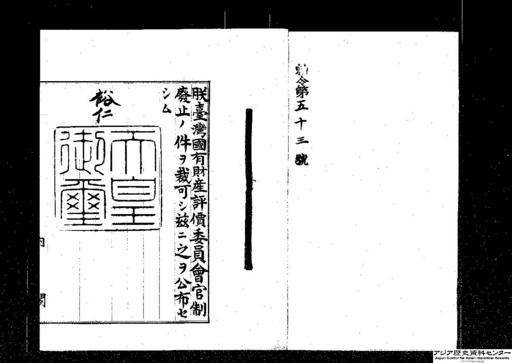 勅令第五十三號
朕臺灣國有財產評價委員會官制
廢止ノ件ヲ裁可シ茲ニ之ヲ公布セ
シム
裕仁
天皇
御璽
内閣
アジア歴史資料センター
Japan Center for Asian Historical Records